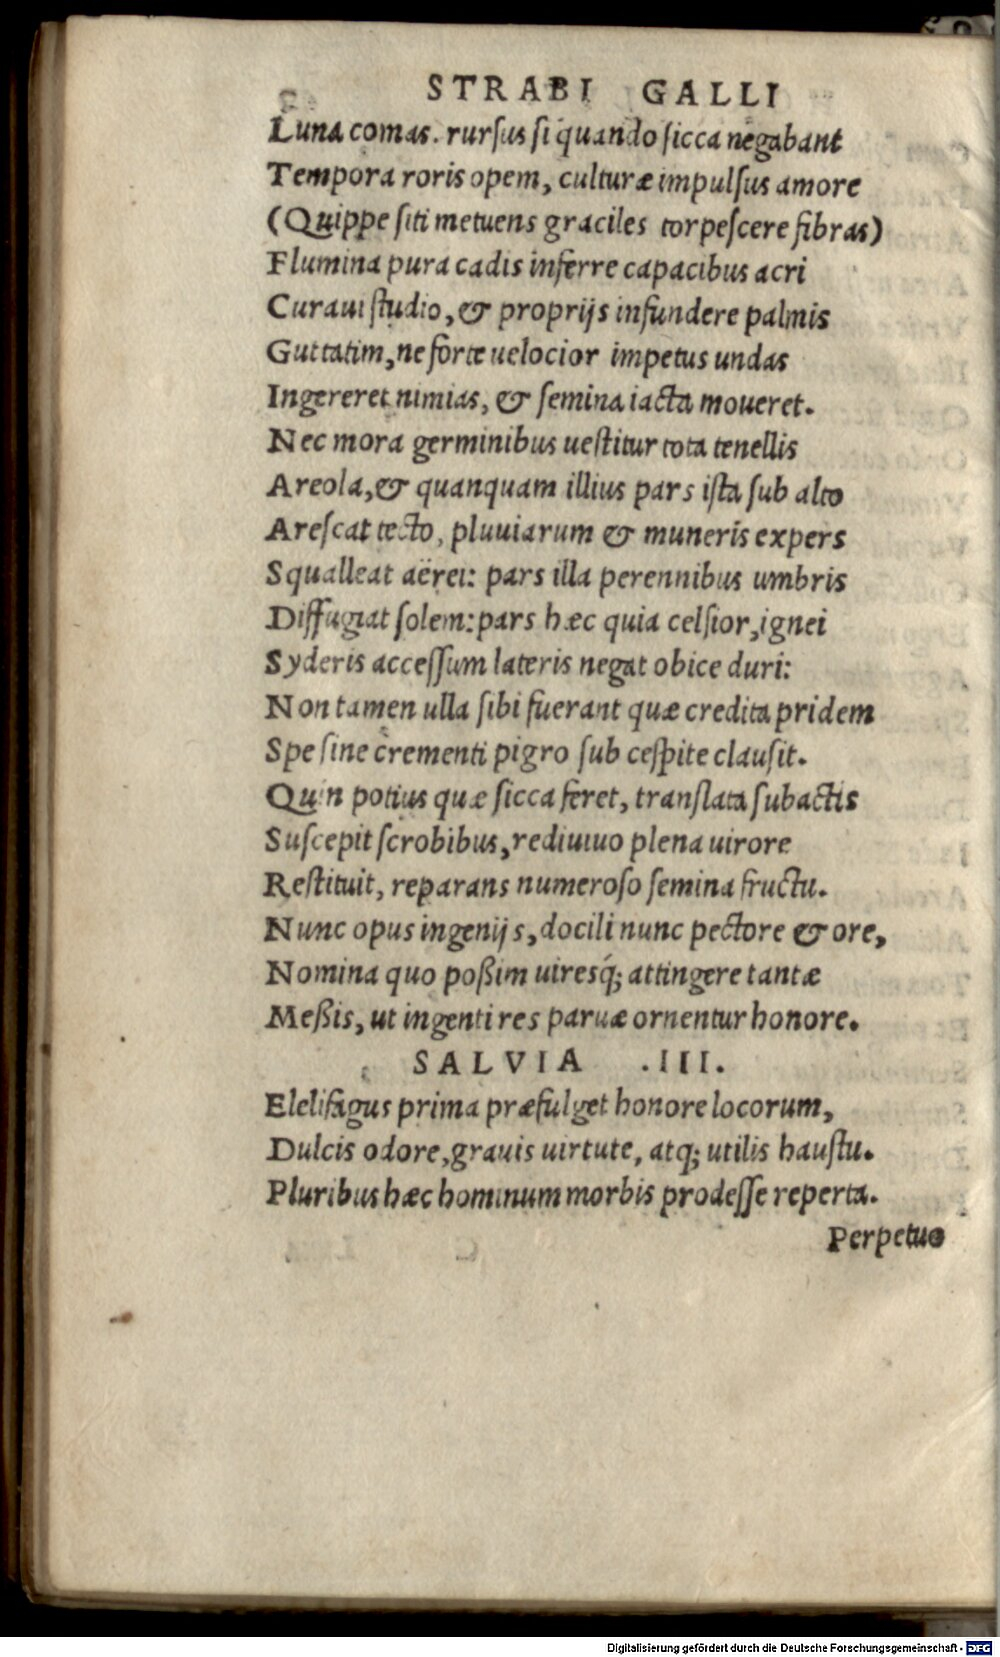 STRABI GALLI
Luna comas. rurſus ſi quando ſicca negabant
Tempora roris opem, culturæ impulſus amore
(Quippe ſiti metuens graciles torpeſcere fibras)
Flumina pura cadis inferre capacibus acri
Curaui ſtudio, & proprijs infundere palmis
Guttatim, ne forte uelocior impetus undas
Ingereret nimias, & ſemina iacta moueret.
Nec mora germinibus ueſtitur tota tenellis
Areola, & quanquam illius pars iſta ſub alto
Areſcat tecto, pluuiarum & muneris expers
Squalleat aërei: pars illa perennibus umbris
Diffugiat ſolem: pars hæc quia celſior, ignei
Syderis acceſſum lateris negat obice duri:
Non tamen ulla ſibi fuerant quæ credita pridem
Spe ſine crementi pigro ſub ceſpite clauſit.
Quin potius quæ ſicca feret, tranſlata ſubactis
Suſcepit ſcrobibus, rediuiuo plena uirore
Reſtituit, reparans numeroſo ſemina fructu.
Nunc opus ingenijs, docili nunc pectore & ore,
Nomina quo poßim uiresq́; attingere tantæ
Meßis, ut ingenti res paruæ ornentur honore.
SALVIA .III.
Eleliſagus prima præfulget honore locorum,
Dulcis odore, grauis uirtute, atq; utilis hauſtu.
Pluribus hæc hominum morbis prodeſſe reperta.
Perpetuo
Digitalisierung gefördert durch die Deutsche Forschungsgemeinschaft - DFG